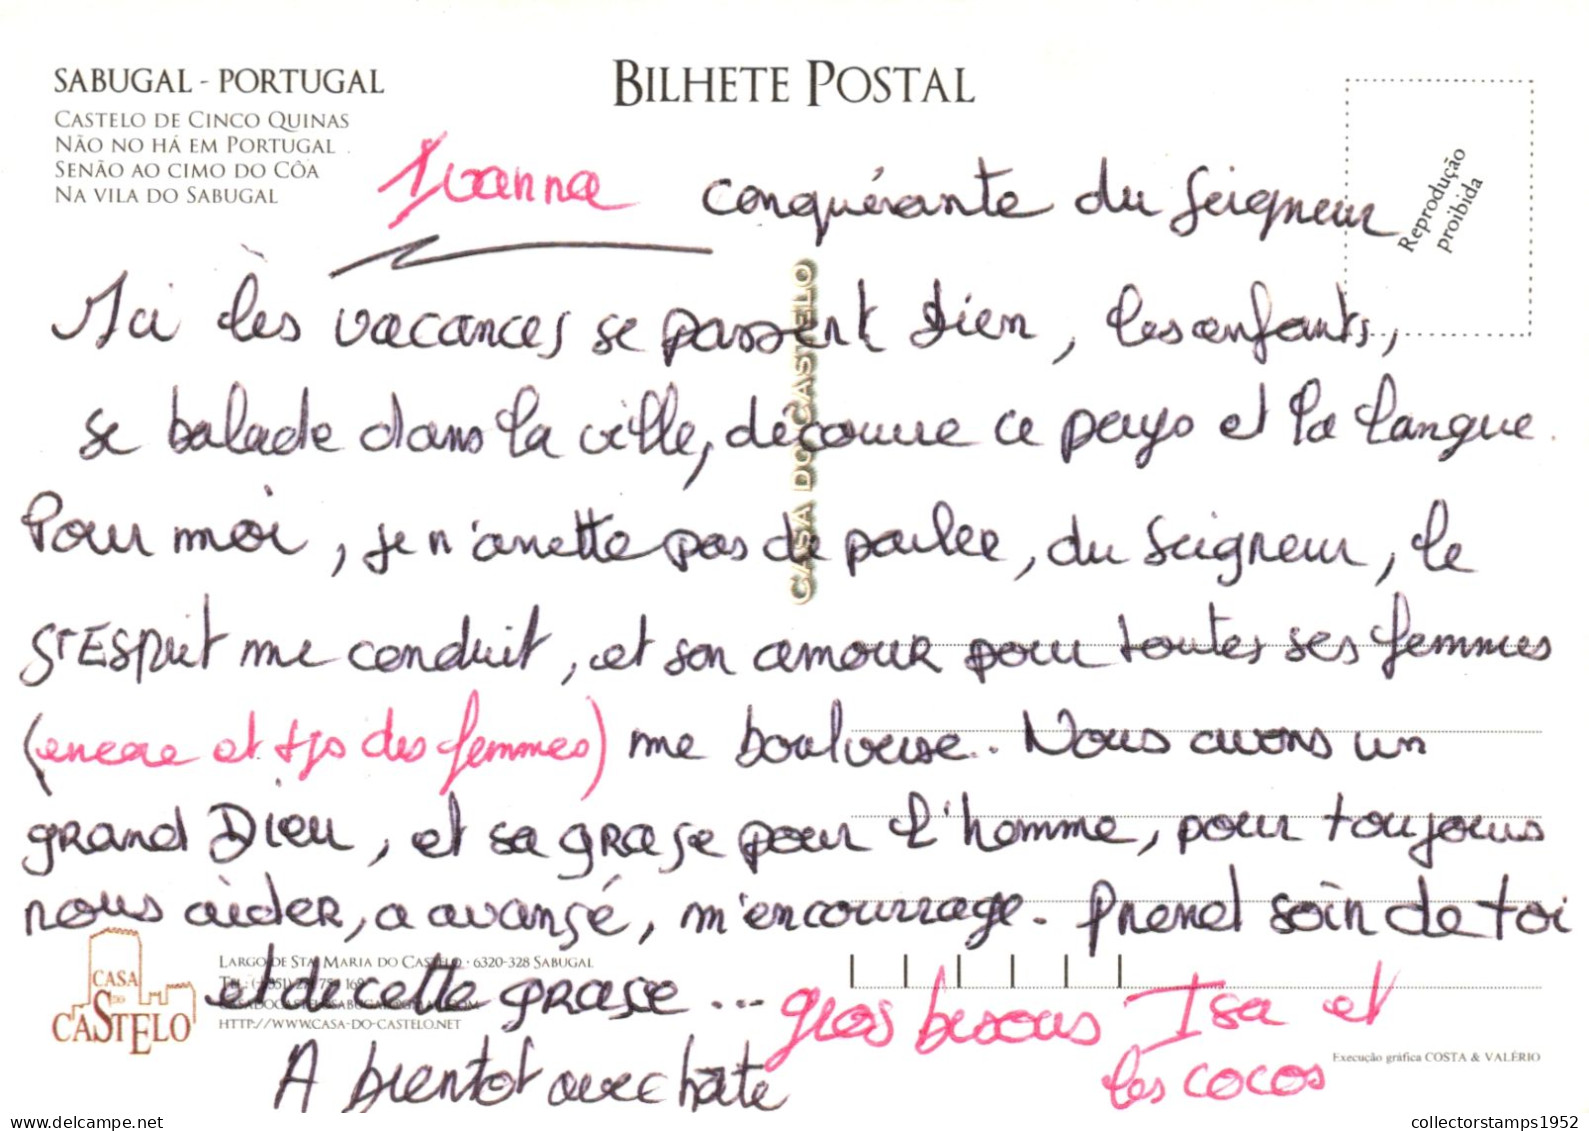 SABUGAL - PORTUGAL
CASTELO DE CINCO QUINAS
NÃO NO HÁ EM PORTUGAL
SENÃO AO CIMO DO CÔA
NA VILA DO SABUGAL
BILHETE POSTAL
Reprodução
proibida
Ivanna conquérante du Seigneur
Ici les vacances se passent bien, les enfants,
se balade dans la ville, découvre ce pays et la langue.
Pour moi, je n'arrette pas de parler, du Seigneur, le
St ESPRIT me conduit, et son amour pour toutes ses femmes
(encore et tjs des femmes) me boulverse. Nous avons un
grand Dieu, et sa grase pour l'homme, pour toujours
nous aider, a avansé, m'encourrage. Prend soin de toi
et de cette grase...
gros bisous Isa et
les cocos
A bientot avec hate
CASA DO CASTELO
CASA
DO
CASTELO
LARGO DE STA MARIA DO CASTELO · 6320-328 SABUGAL
HTTP://WWW.CASA-DO-CASTELO.NET
Execução gráfica COSTA & VALÉRIO
delcampe.net
collectorstamps1952